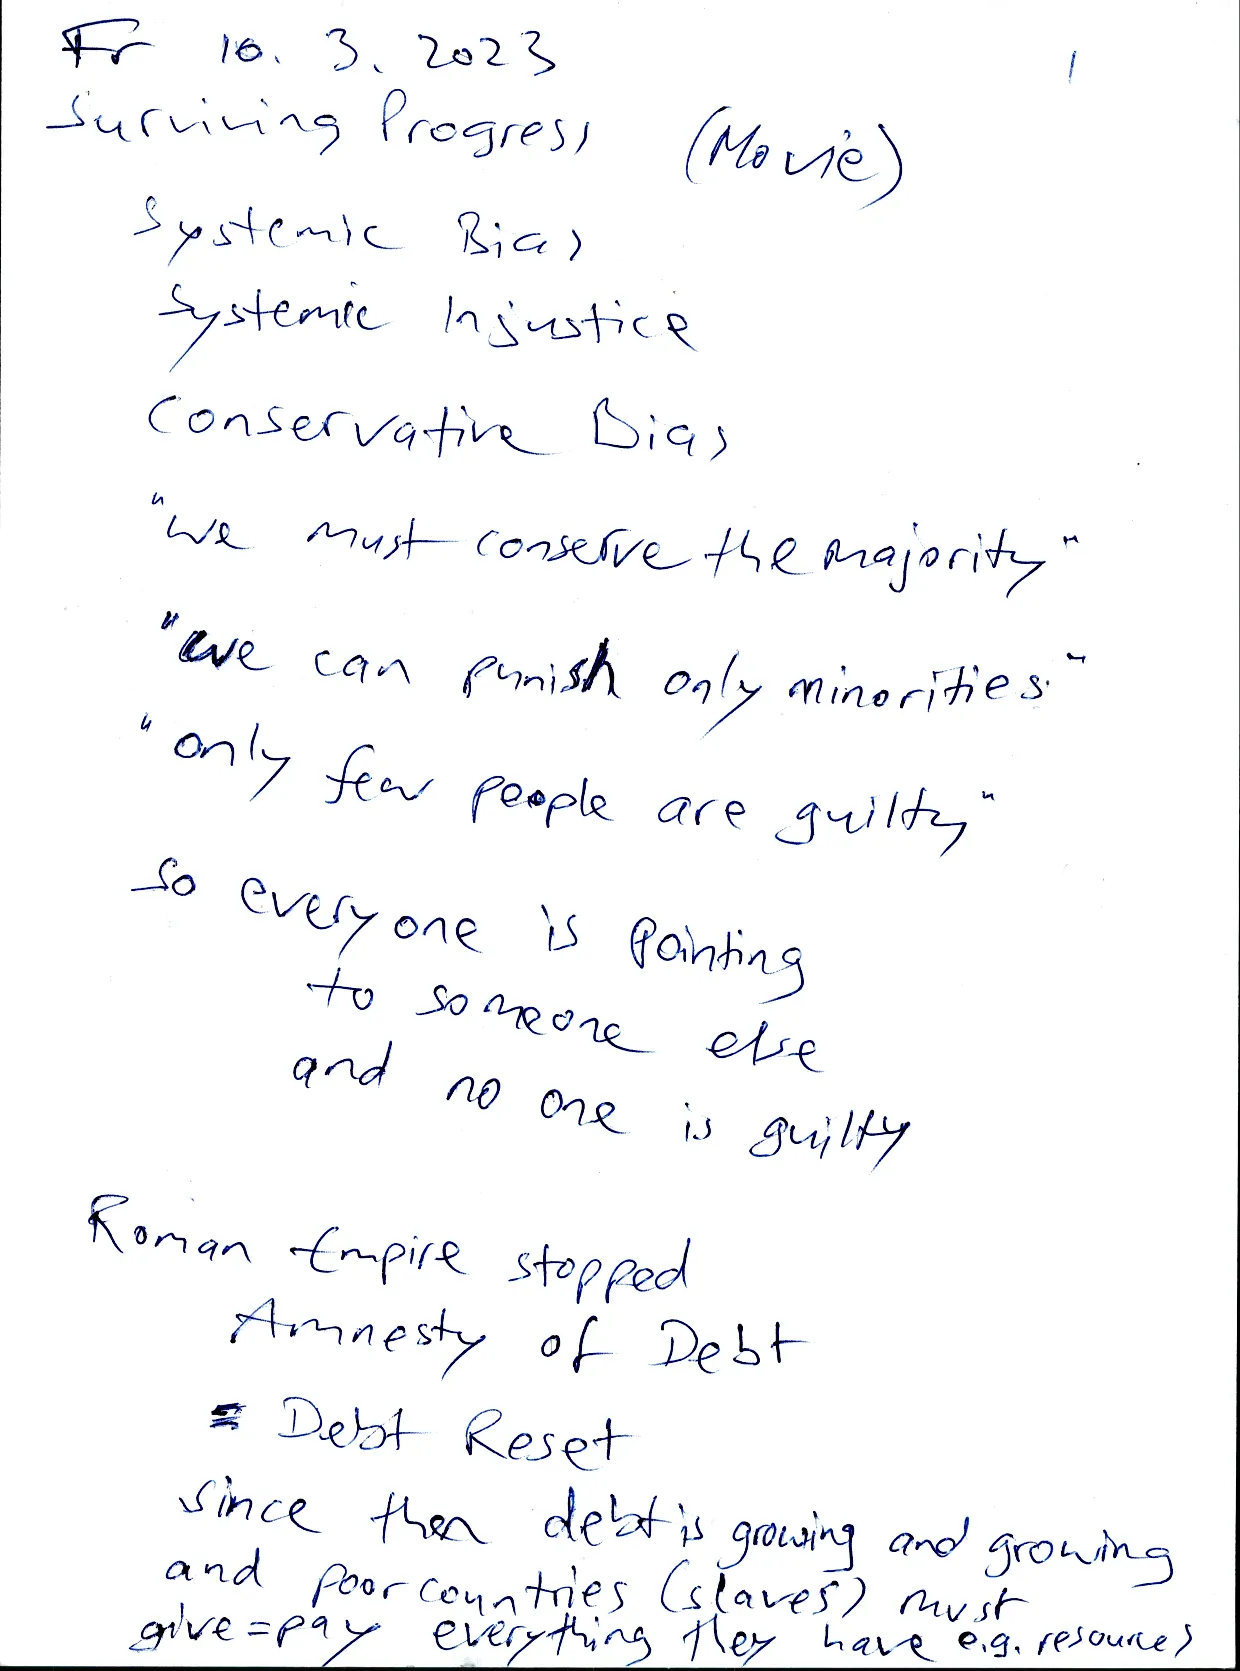 Fr 10. 3. 2023
1
Surviving Progress (Movie)
Systemic Bias
Systemic Injustice
Conservative Bias
"we must conserve the majority"
"we can punish only minorities."
"only few people are guilty"
so everyone is pointing
to someone else
and no one is guilty
Roman Empire stopped
Amnesty of Debt
= Debt Reset
since then debt is growing and growing
and poor countries (slaves) must
give = pay everything they have e.g. resources